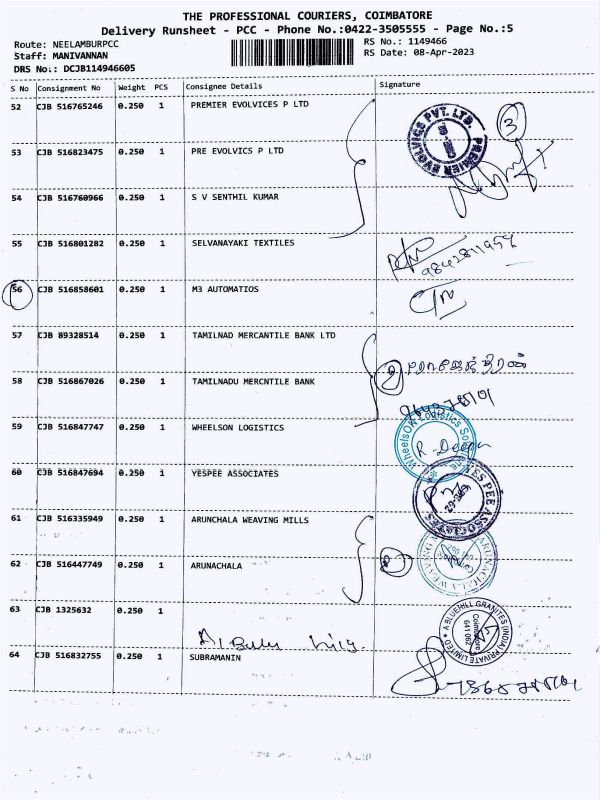 THE PROFESSIONAL COURIERS, COIMBATORE
Delivery Runsheet - PCC - Phone No.:0422-3505555 - Page No.:5
Route: NEELAMBURPCC
RS No.: 1149466
Staff: MANIVANNAN
RS Date: 08-Apr-2023
DRS No.: DCJB114946605
S No Consignment No Weight PCS Consignee Details Signature
52 CJB 516765246 0.250 1 PREMIER EVOLVICES P LTD
PREMIER EVOLVICS PVT. LTD.
3
53 CJB 516823475 0.250 1 PRE EVOLVICS P LTD
54 CJB 516760966 0.250 1 S V SENTHIL KUMAR
55 CJB 516801282 0.250 1 SELVANAYAKI TEXTILES
56 CJB 516858601 0.250 1 M3 AUTOMATIOS
57 CJB 89328514 0.250 1 TAMILNAD MERCANTILE BANK LTD
58 CJB 516867026 0.250 1 TAMILNADU MERCNTILE BANK
59 CJB 516847747 0.250 1 WHEELSON LOGISTICS
R. Deepa
60 CJB 516847694 0.250 1 YESPEE ASSOCIATES
YES PEE ASSOCIATES
61 CJB 516335949 0.250 1 ARUNCHALA WEAVING MILLS
62 CJB 516447749 0.250 1 ARUNACHALA
63 CJB 1325632 0.250 1
A BLUEHILL GRANITES (INDIA) PRIVATE LIMITED
Coimbatore
641 062
64 CJB 516832755 0.250 1 SUBRAMANIN